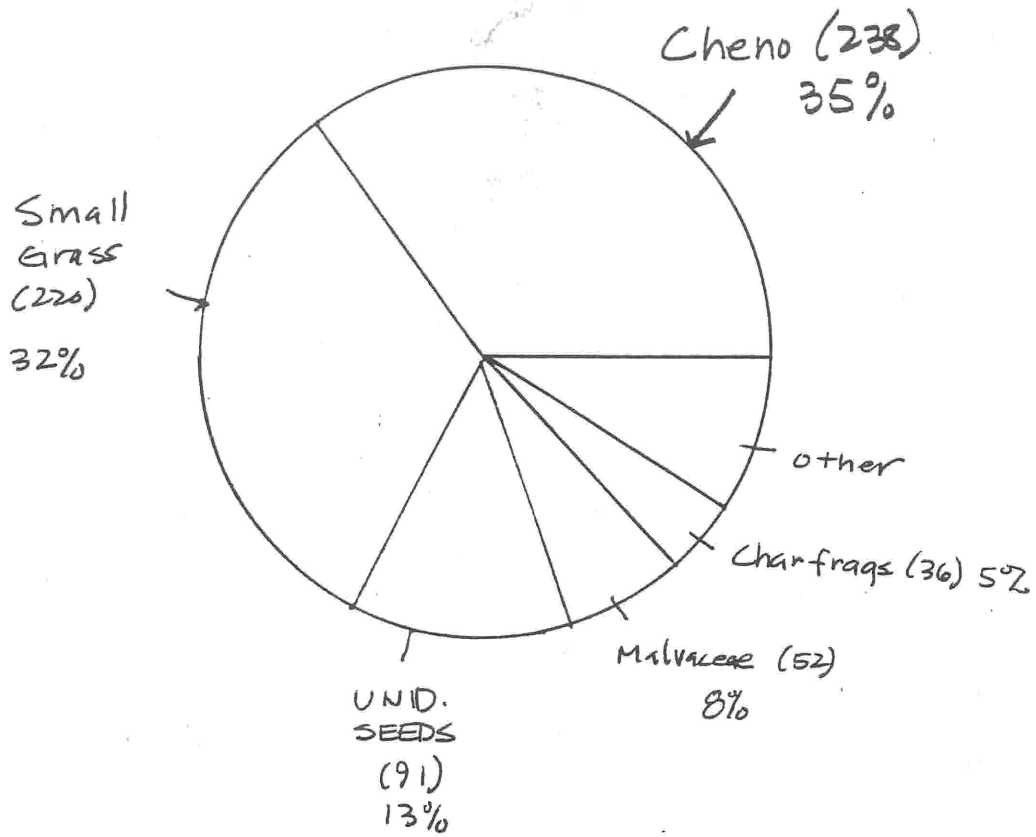 Cheno (238)
35%
Small
Grass
(220)
32%
other
Charfrags (36) 5%
Malvaceae (52)
8%
UNID.
SEEDS
(91)
13%